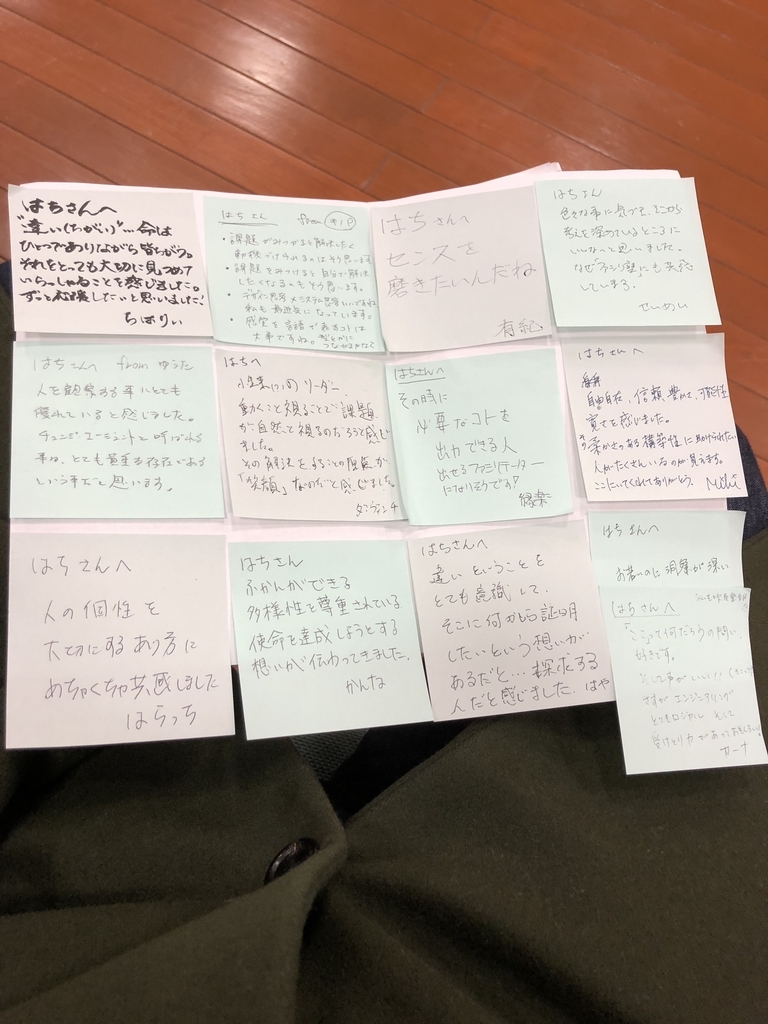 はちさんへ
"違い(ちがい)"…命は
ひとつでありながら皆ちがう。
それをとっても大切に見つめて
いらっしゃることを感じました。
ずっと応援したいと思いました!
ちばりぃ
はちさん from
課題がみつかると解決したく
課題をみつけると自分で解決
したくなる
デザイン思考 システム思考いいですね
私も最近気になっています
感覚を言語で表すコトは
大事ですね。
はちさんへ
センスを
磨きたいんだね
有紀
はちさん
色々な事に気づき、そこから
考えを深めているところに
いいなぁと思いました。
せいめい
はちさんへ from ゆうた
人を観察する事にとても
優れていると感じました。
チェンジエージェントと呼ばれる
事は、とても貴重な存在である
という事だと思います。
はちへ
リーダー
動くこと視ることで課題
が自然と視るのだろうと感じ
ました。
その解決をすることの原点が
「笑顔」なのだと感じました。
はちさんへ
その時に
必要なコトを
出力できる人
出せるファシリテーター
になりそうです!
はちさんへ
自由自在、信頼、豊かさ、可能性
寛さを感じました。
柔かさのある構築性に助けられたい
人がたくさんいるのが見えます。
ここにいてくれてありがとう。 Miki
はちさんへ
人の個性を
大切にするあり方に
めちゃくちゃ共感しました
はらっち
はちさん
ふかんができる
多様性を尊重されている
使命を達成しようとする
想いが伝わってきました。
かんな
はちさんへ
違いということを
とても意識して、
そこに何かしら証明
したいという想いが
あるだと…探求する
人だと感じました. はや
はちさんへ
お若いのに洞察が深い
はちさんへ
って何だろうの問い、
好きです。
そして声がいい!!
さすがエンジニアリング
とてもロジカル そして
受けとり力があって
カーナ